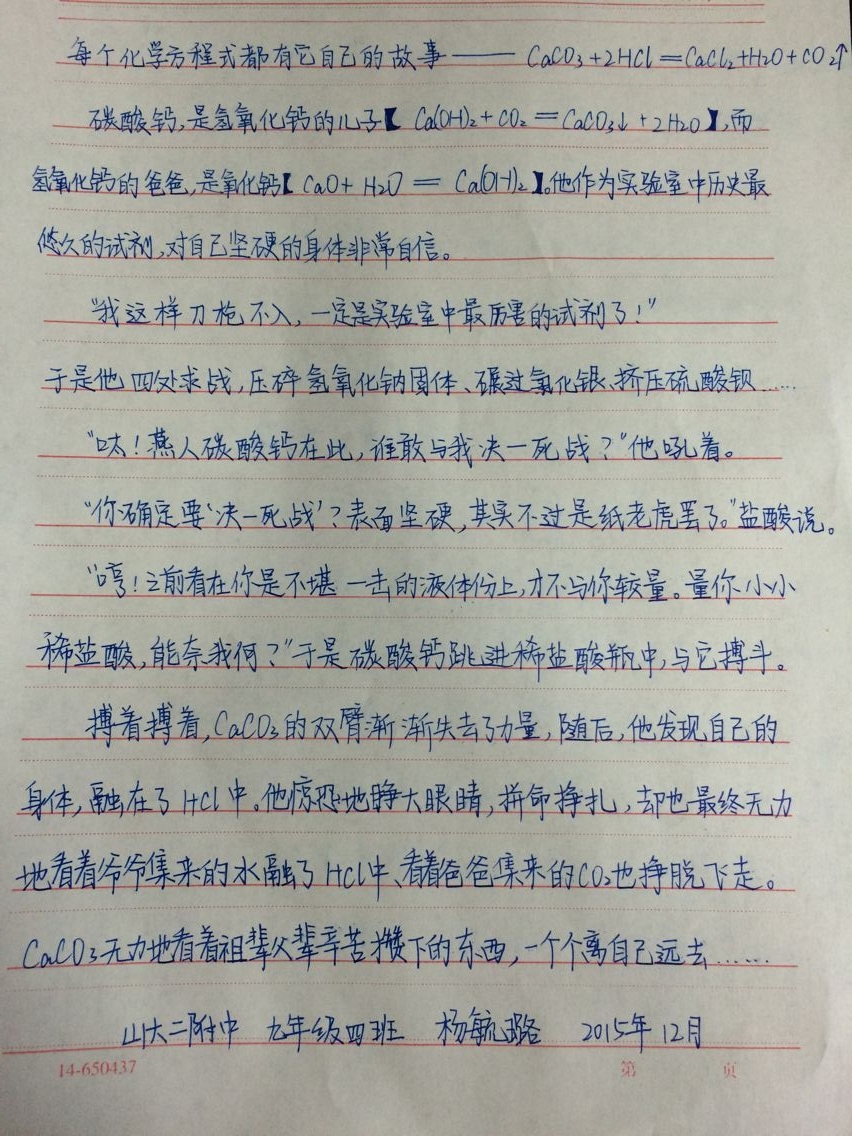 每个化学方程式都有它自己的故事——CaCO₃+2HCl=CaCl₂+H₂O+CO₂↑
碳酸钙,是氢氧化钙的儿子【Ca(OH)₂+CO₂=CaCO₃↓+2H₂O】,而
氢氧化钙的爸爸,是氧化钙【CaO+H₂O=Ca(OH)₂】。他作为实验室中历史最
悠久的试剂,对自己坚硬的身体非常自信。
“我这样刀枪不入,一定是实验室中最厉害的试剂了!”
于是他四处求战,压碎氢氧化钠固体、碾过氯化银、挤压硫酸钡……
“呔!燕人碳酸钙在此,谁敢与我决一死战?”他吼着。
“你确定要‘决一死战’?表面坚硬,其实不过是纸老虎罢了。”盐酸说。
“哼!之前看在你是不堪一击的液体份上,才不与你较量。量你小小
稀盐酸,能奈我何?”于是碳酸钙跳进稀盐酸瓶中,与它搏斗。
搏着搏着,CaCO₃的双臂渐渐失去了力量,随后,他发现自己的
身体,融在了HCl中。他惊恐地睁大眼睛,拼命挣扎,却也最终无力
地看着爷爷集来的水融了HCl中、看着爸爸集来的CO₂也挣脱飞走。
CaCO₃无力地看着祖辈父辈辛苦攒下的东西,一个个离自己远去……
山大二附中 九年级四班 杨毓璐 2015年12月
14-650437 第 页